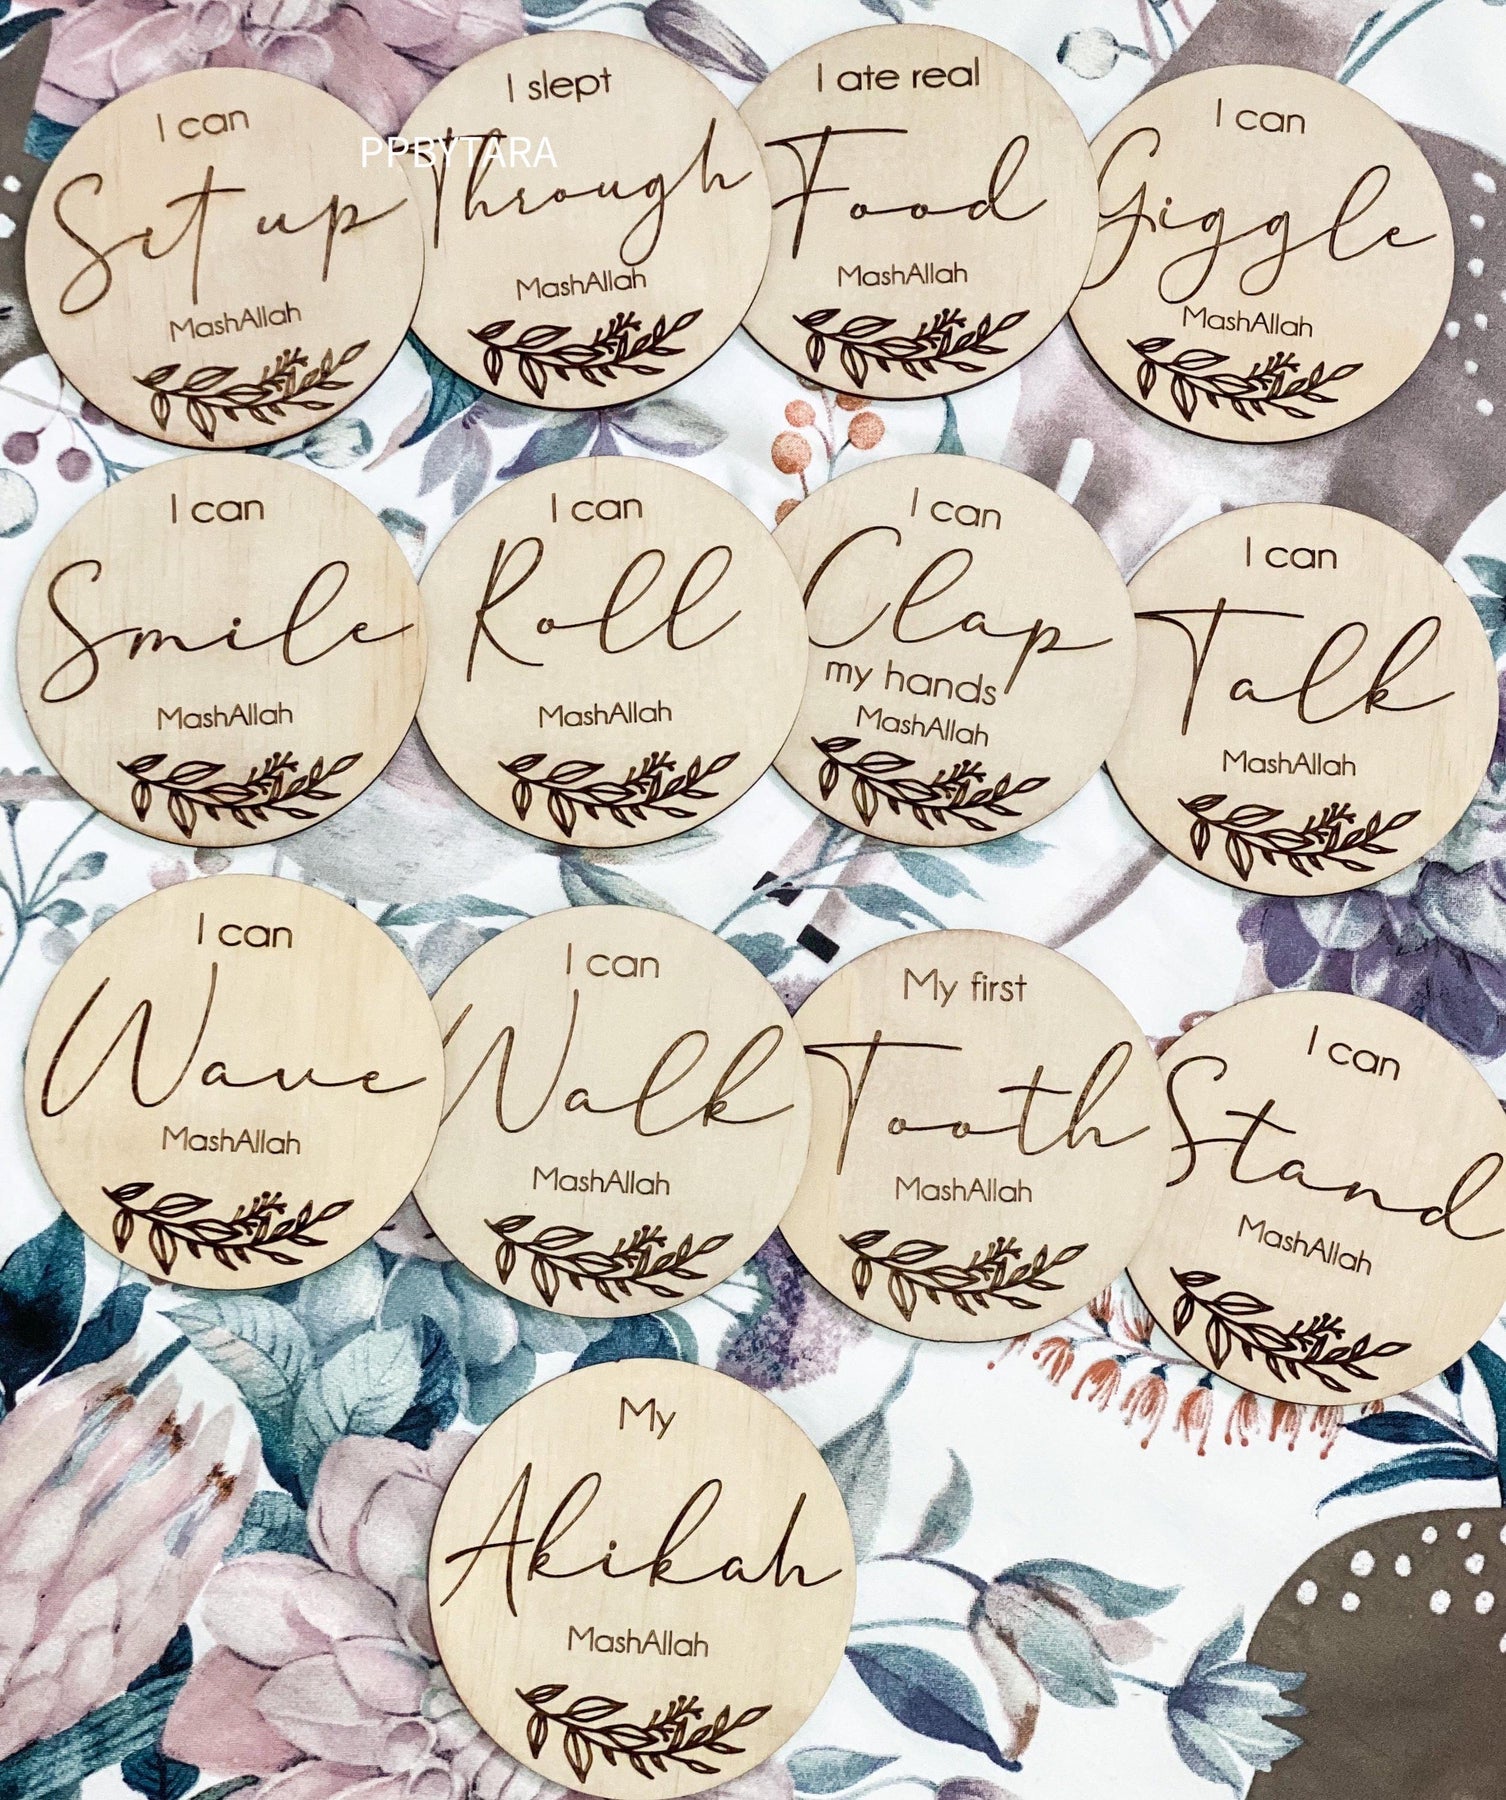 I can
Sit up
MashAllah
I slept
Through
MashAllah
I ate real
Food
MashAllah
I can
Giggle
MashAllah
PPBYTARA
I can
Smile
MashAllah
I can
Roll
MashAllah
I can
Clap
my hands
MashAllah
I can
Talk
MashAllah
I can
Wave
MashAllah
I can
Walk
MashAllah
My first
Tooth
MashAllah
I can
Stand
MashAllah
My
Akikah
MashAllah